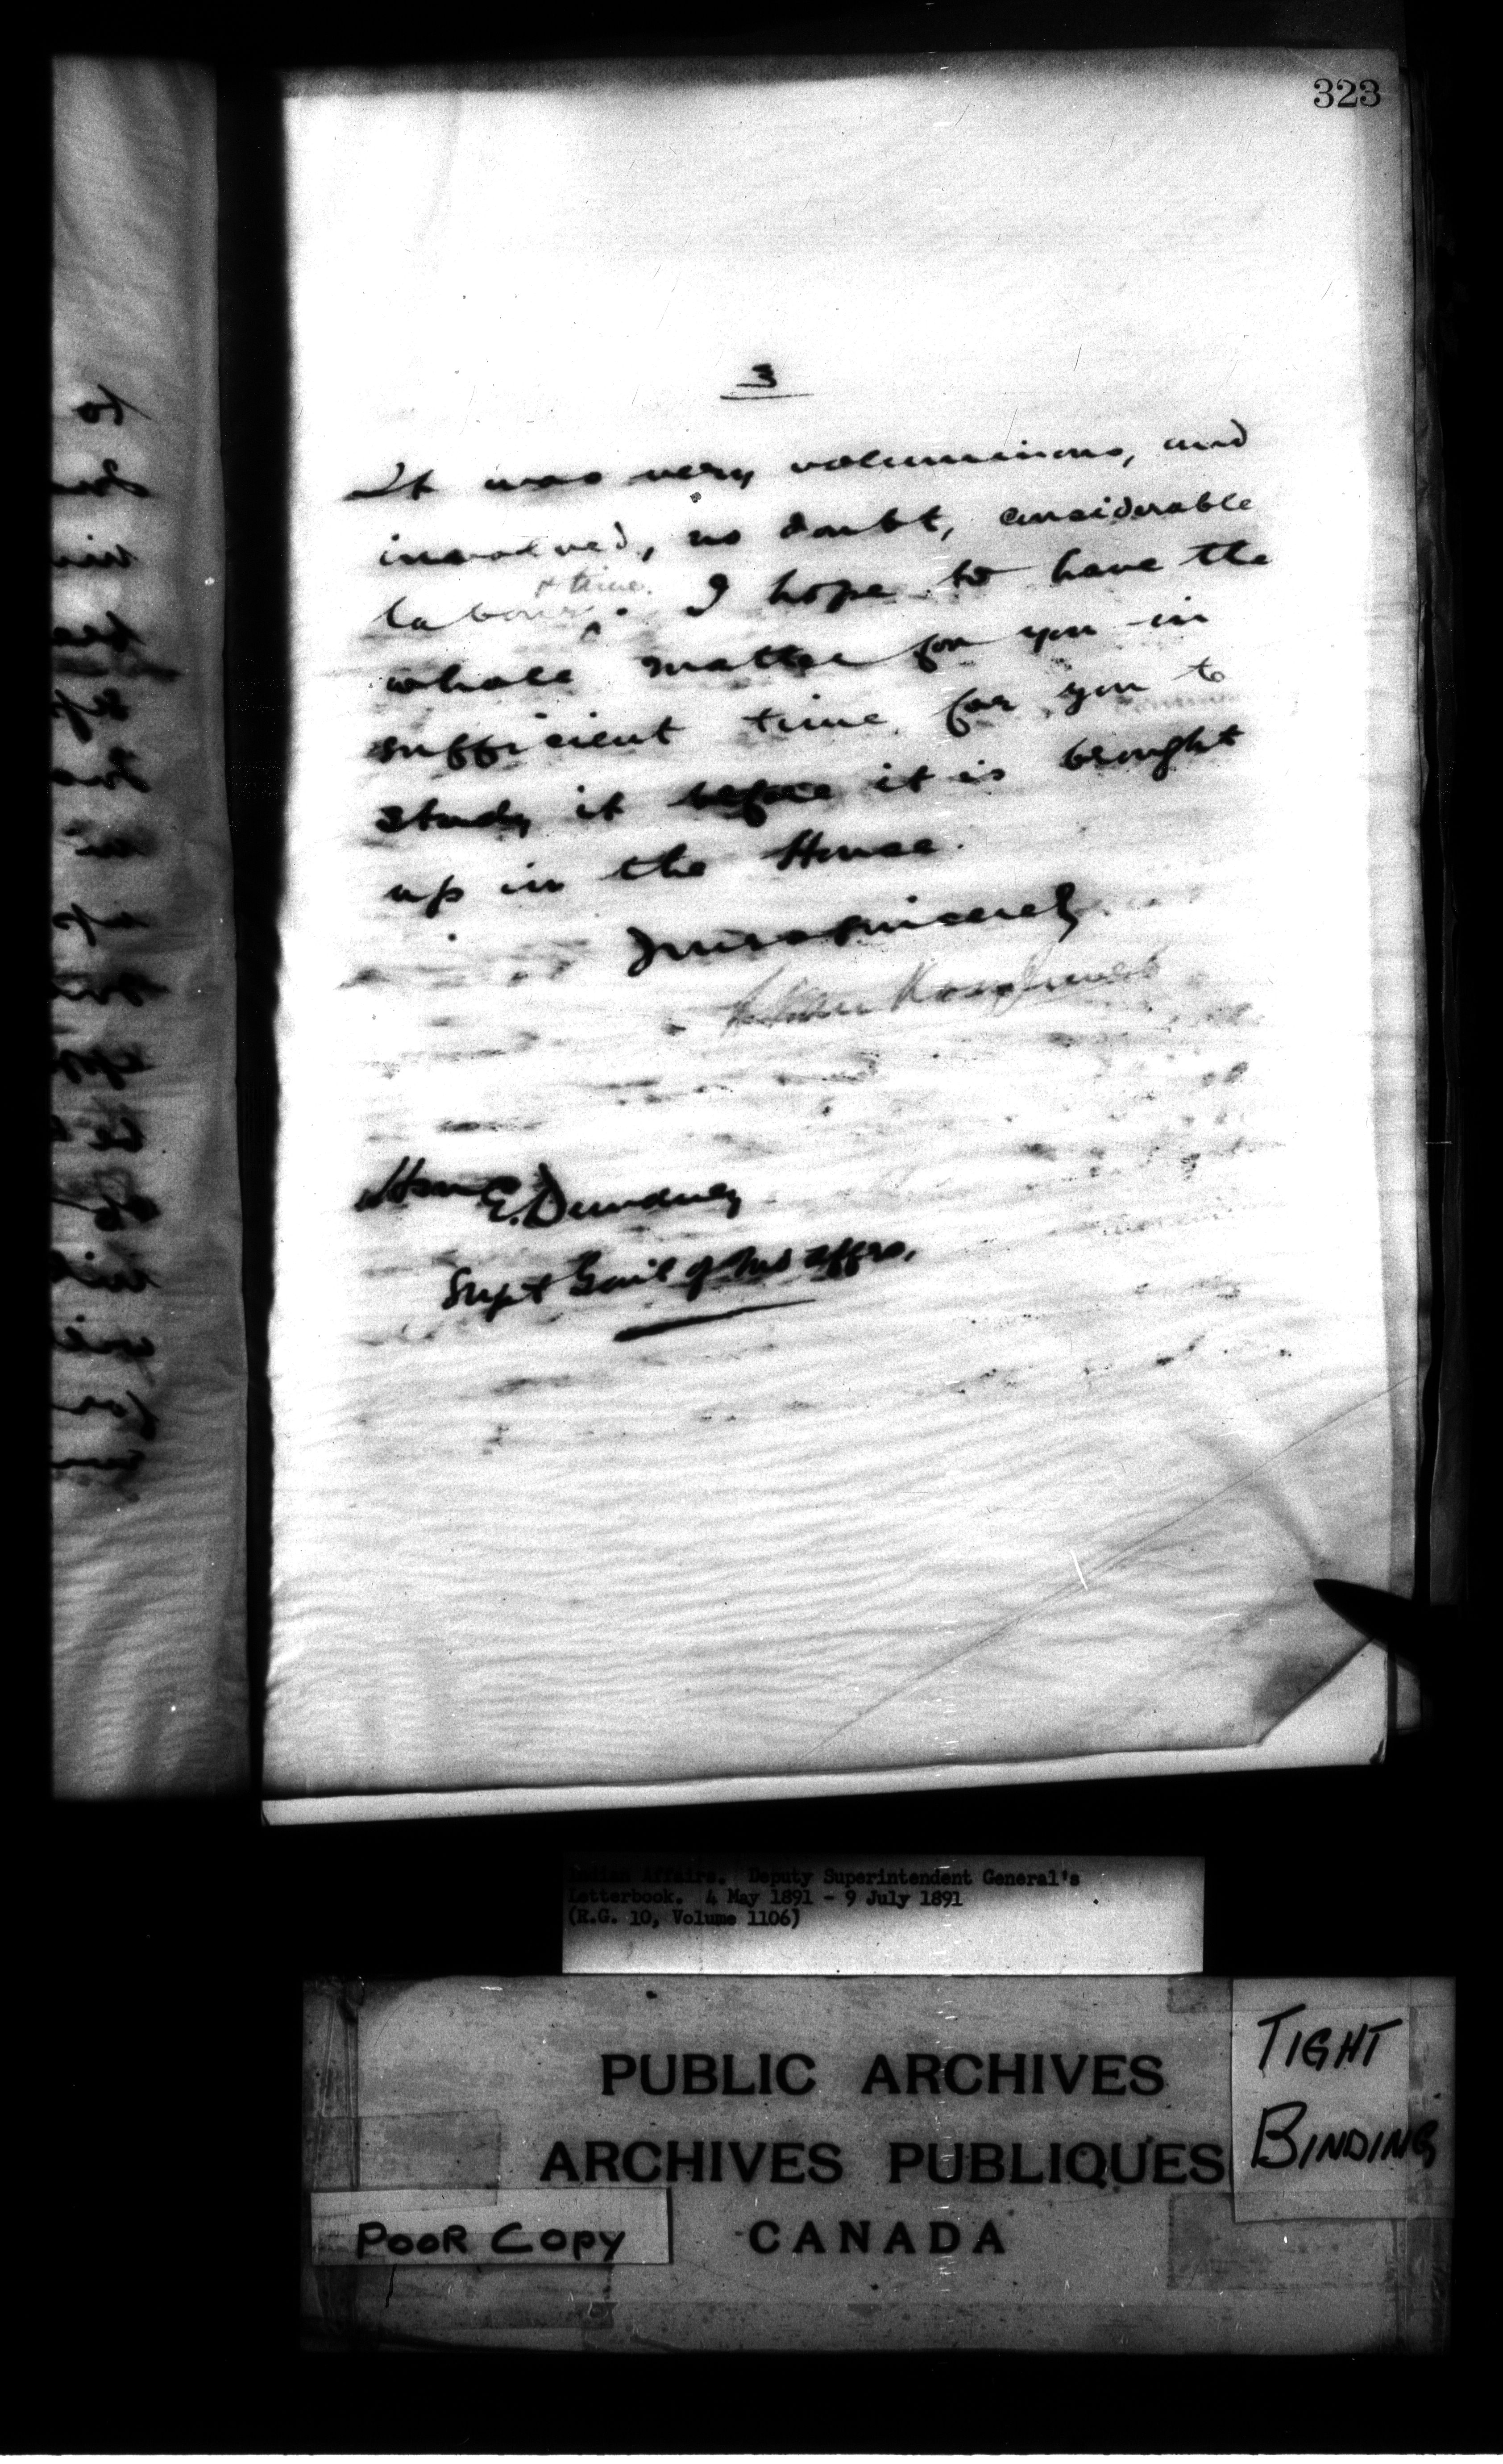 323
3
It was very voluminous, and
involved, no doubt, considerable
& time
labour. I hope to have the
whole matter for you in
sufficient time for you to
study it before it is brought
up in the House.
Yours sincerely
Hon E. Dewdney
Supt Genl of Ind Affrs.
Indian Affairs. Deputy Superintendent General's
Letterbook. 4 May 1891 - 9 July 1891
(R.G. 10, Volume 1106)
PUBLIC ARCHIVES
ARCHIVES PUBLIQUES
CANADA
TIGHT
BINDING
POOR COPY